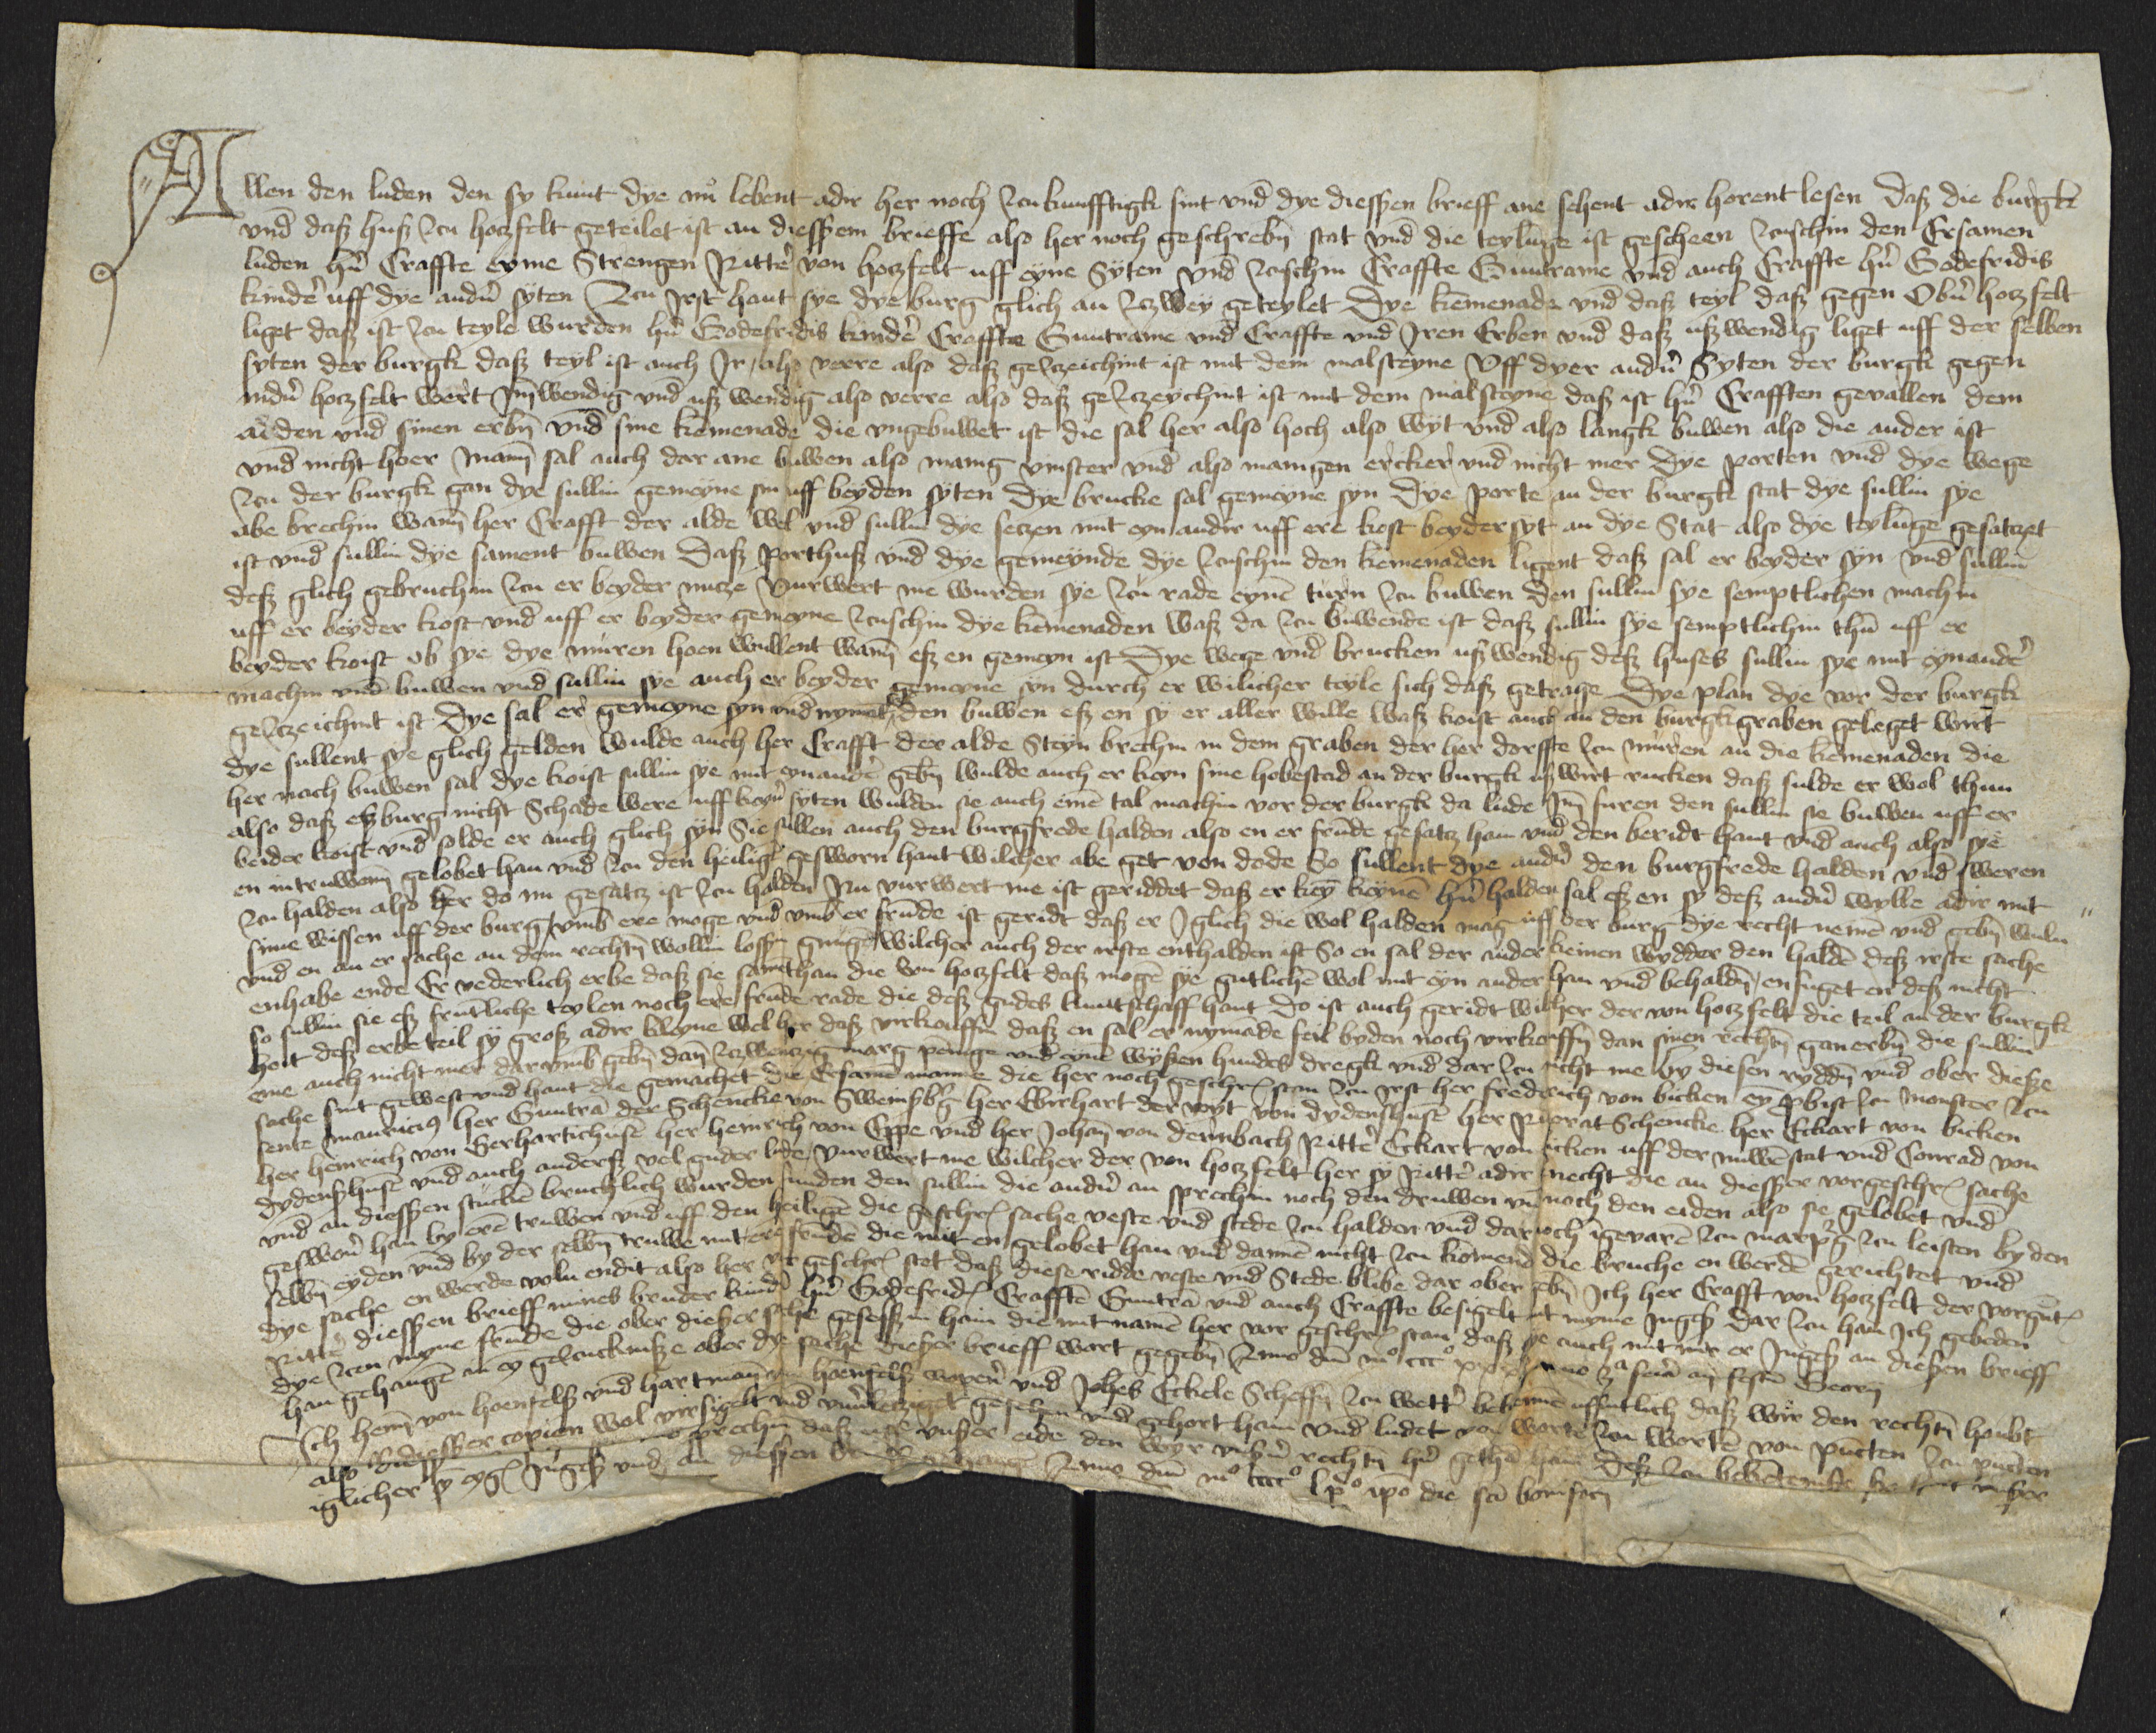 Allen den luden den sy kunt dye nu lebent adir her noch zcukunfftigk sint vnd dye diessen brieff ane sehent adir horent lesen Daß die burgk
vnd daß huß zcu hotzfelt geteilet ist an diessem brieffe also her noch geschrebn stat vnd die teylunge ist gescheen zcuschin den Ersamen
luden hern Craffte eyme Strengen Ritter von hotzfelt uff eyne Syten vnd zcuschin Craffte Guntrame vnd auch Craffte hern Godefridis
kinder uff dye andern syten Zcu Irst hant sye dye burg glich an zczwey geteylet Dye kemenade vnd daß teyl daß gegen Obern hotzfelt
liget daß ist zcu teyle wurden hern Godefridis kinder Craffte Guntrame vnd Craffte vnd Iren Erben vnd daß ußwendig liget uff der selben
syten der burgk daß teyl ist auch Ir also verre also daß geczeichint ist mit dem malsteyne Uff dyer andern Syten der burgk gegen
nidern hotzfelt wert Inwendig vnd ußwendig also verre also daß geczeychint ist mit dem malsteyne daß ist hern Crafften gevallen dem
alden vnd sinen erbin vnd sine kemenade die vngebuwet ist die sal her also hoch also wyt vnd also langk buwen also die ander ist
vnd nicht hoer Mann sal auch dar ane buwen also manig vinster vnd also manigen ercker vnd nicht mer Dye porten vnd dye wege
zcu der burgk gan dye sullin gemeyne sin uff beyden syten Dye brucke sal gemeyne syn Dye porte an der burgk stat dye sullin sye
abe brechin wann her Crafft der alde wel vnd sullin dye setzen mit eyn andir uff ere kost beydersyt an dye Stat also dye teylunge gesatzet
ist vnd sullin dye sament buwen Daß porthuß vnd dye gemeynde dye zcuschin den kemenaden ligent daß sal er beyder syn vnd sullin
deß glich gebruchin zcu er beyder nutze Vurwert me wurden sye zcu rade eynen turn zcu buwen den sullin sye semptlichen machin
uff er beyder kost vnd uff er beyder gemeyne zcuschin dye kemenaden waß da zcu buwende ist daß sullin sye semptlichin thun uff er
beyder koist ob sye dye muren hoen wullent wann eß en gemeyn ist Dye wege vnd brucken ußwendig deß huses sullin sye mit eynander
machin vnd buwen vnd sullin sye auch er beyder gemeyne syn durch er wilicher teyle sich daß getrage Dye plan dye vor der burgk
geczeichint ist Dye sal er gemeyne syn vnd nyment den buwen eß en sy er aller wille waß koist auch an den burgkgraben geleget wirt
dye sullent sye glich gelden wulde auch her Crafft der alde Steyn brechin in dem graben der her dorffte zcu muren an die kemenaden die
her nach buwen sal dye koist sullin sye mit eynander gebin wulde auch er keyn sine hobestad an der burgk ußwirt rucken daß sulde er wol thun
also daß eß burg nicht Schade were uff keyn syten wulden sie auch einen tal machin vor der burgk da lude Inn furen den sullin sie buwen uff er
beider koist vnd solde er auch glich syn Sie sullen auch den burgfrede halden also en er frunde gesatz han vnd den beridt hant vnd auch also sye
en intruwenn gelobet han vnd zcu den heiligen gesworn hant wilcher abe get von dode So sullent dye andern den burgfrede halden vnd sweren
zcu halden also her do nu gesatz ist zcu halden Nu vurwert me ist geriddet daß er key keynen hern halden sal eß en sy deß andern wylle adir mit
sime wissen uff der burg vmb ere moge vnd vmb er frunde ist geridt daß er Iglich die wol halden mag uff der burg dye recht nemen vnd gebin wuln
vnd en an er sache an dem rechten wollin lossen gnugen wilcher auch der irste enthalden ist So en sal der ander keinen wydder den halden deß irste sache
enhabe ende Er vederlich erbe daß sie samethan die von hotzfelt daß mogen sye gutlichen wol mit eyn ander han vnd behalden, en fuget en deß nicht
so sullin sie eß fruntliche teylen noch ere frunde rade die deß gudes kuntschaff hant Do ist auch geridt wilcher der von hotzfelt die teil an der burgk
hoit deß erbe teil sy groß adir kleyne wel her daß virkouffin daß en sal er nymade feil byden noch virkouffin dan sinen rechten ganerbin die sullin
eme auch nicht mer dar vmb gebin dan zczwentzig marg pennige vnd eynen wyßen hundes dregk vnd dar zcu nicht me by diesen ryddin vnd ober dieße
sache sint gewest vnd hant die gemachet die Ersame manne die her noch geschr stan zcu Irst her frederich von bicken eyn pbist zcu monster zcu
sente Mauricius her Guntra der Schencke von Sweinsbg her Ebirhart der voyt von dydenshusen her Ruprat Schencke her Eckart von bicken
her heinrich von Gerhartichusen her heinrich von Eppe vnd her Johan von dernbach Ritter Eckart von bicken uff der nuwenstat vnd Conrad von
dydenßhusen vnd auch anderß vel guder lude, Vurwert me wilcher der von hotzfelt her sy Ritter adir knecht die an diesser vorgeschr sache
vnd an diessen stucken bruchlich wurden funden den sullin die andern an sprechin noch den druwen vnd noch den eiden also sie gelobet vnd
geswern han by eren truwen vnd uff den heiligen die geschr sache veste vnd stede zcu halden vnd darnoch ingevaren zcu marpg zcu leisten by den
selbin eyden vnd by der selbin truwe mit eren frunden die mit en gelobet han vnd dannen nicht zcu komend die bruche en werden gerichtet vnd
dye sache en werde voln endit also her vor geschr stet daß diese ridde veste vnd Stede blibe dar ober gebin Ich her Crafft von hotzfelt der vorgnt
Ritter diessen brieff mines bruder kinden hern Godefrid Crafften Guntra vnd auch Craffte besigelt mit myme Ingeß dar zcu han Ich gebeden
dye zcen myne frunde die ober dießer sache gesessin hain die mit namen her vor geschr stan daß sye auch mit mir er Ingeß an dießen brieff
han gehangen in eyn geczuckniße ober dye sache Dießer brieff wart gegebin Anno dni mo ccco xxxxx feria an festu Georij
Ich henn von hoenfelß vnd hartman von hoenfelß wepener vnd Johes Eckele Scheffin zcu wetter bekennen uffintlich daß wir den rechten houbt
also diesser copien wol virsigelt vnd vnverletziget gesehen vnd gehort han vnd ludet von worte zcu worten von puncten zcu puncten
iglicher syn eygen Ingeß vnd an diessen brieff gehangen Anno dni mo cccco lpo ipo die sci bonifacij